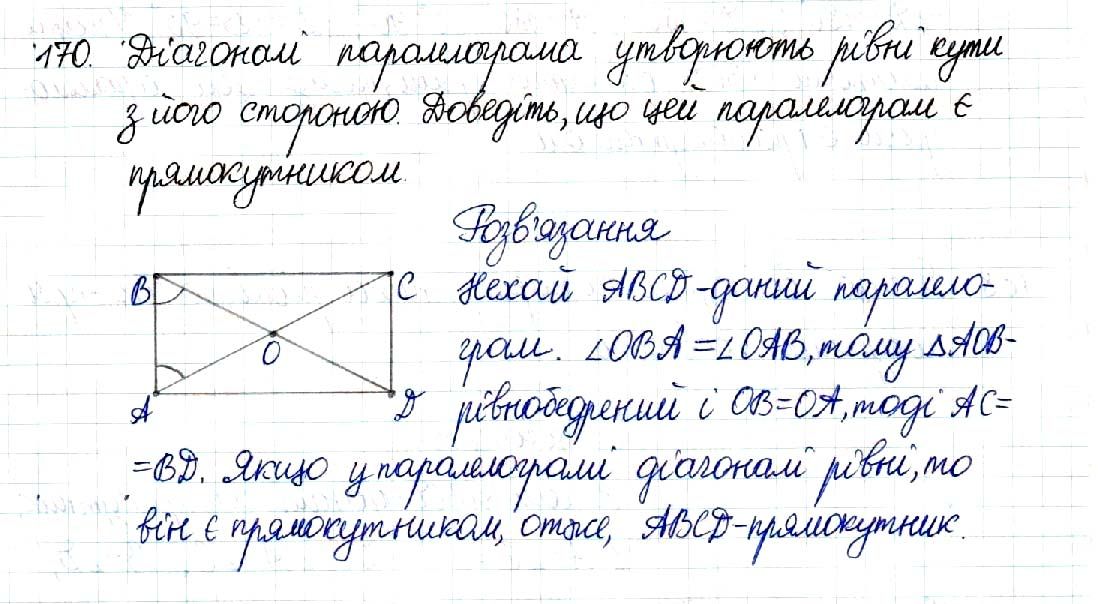 170. Діагоналі паралелограма утворюють рівні кути
з його стороною. Доведіть, що цей паралелограм є
прямокутником.
Розв'язання
B C
O
A D
Нехай ABCD-даний паралело-
грам. ∠OBA=∠OAB, тому △AOB-
рівнобедрений і OB=OA, тоді AC=
=BD. Якщо у паралелограмі діагоналі рівні, то
він є прямокутником, отже, ABCD-прямокутник.